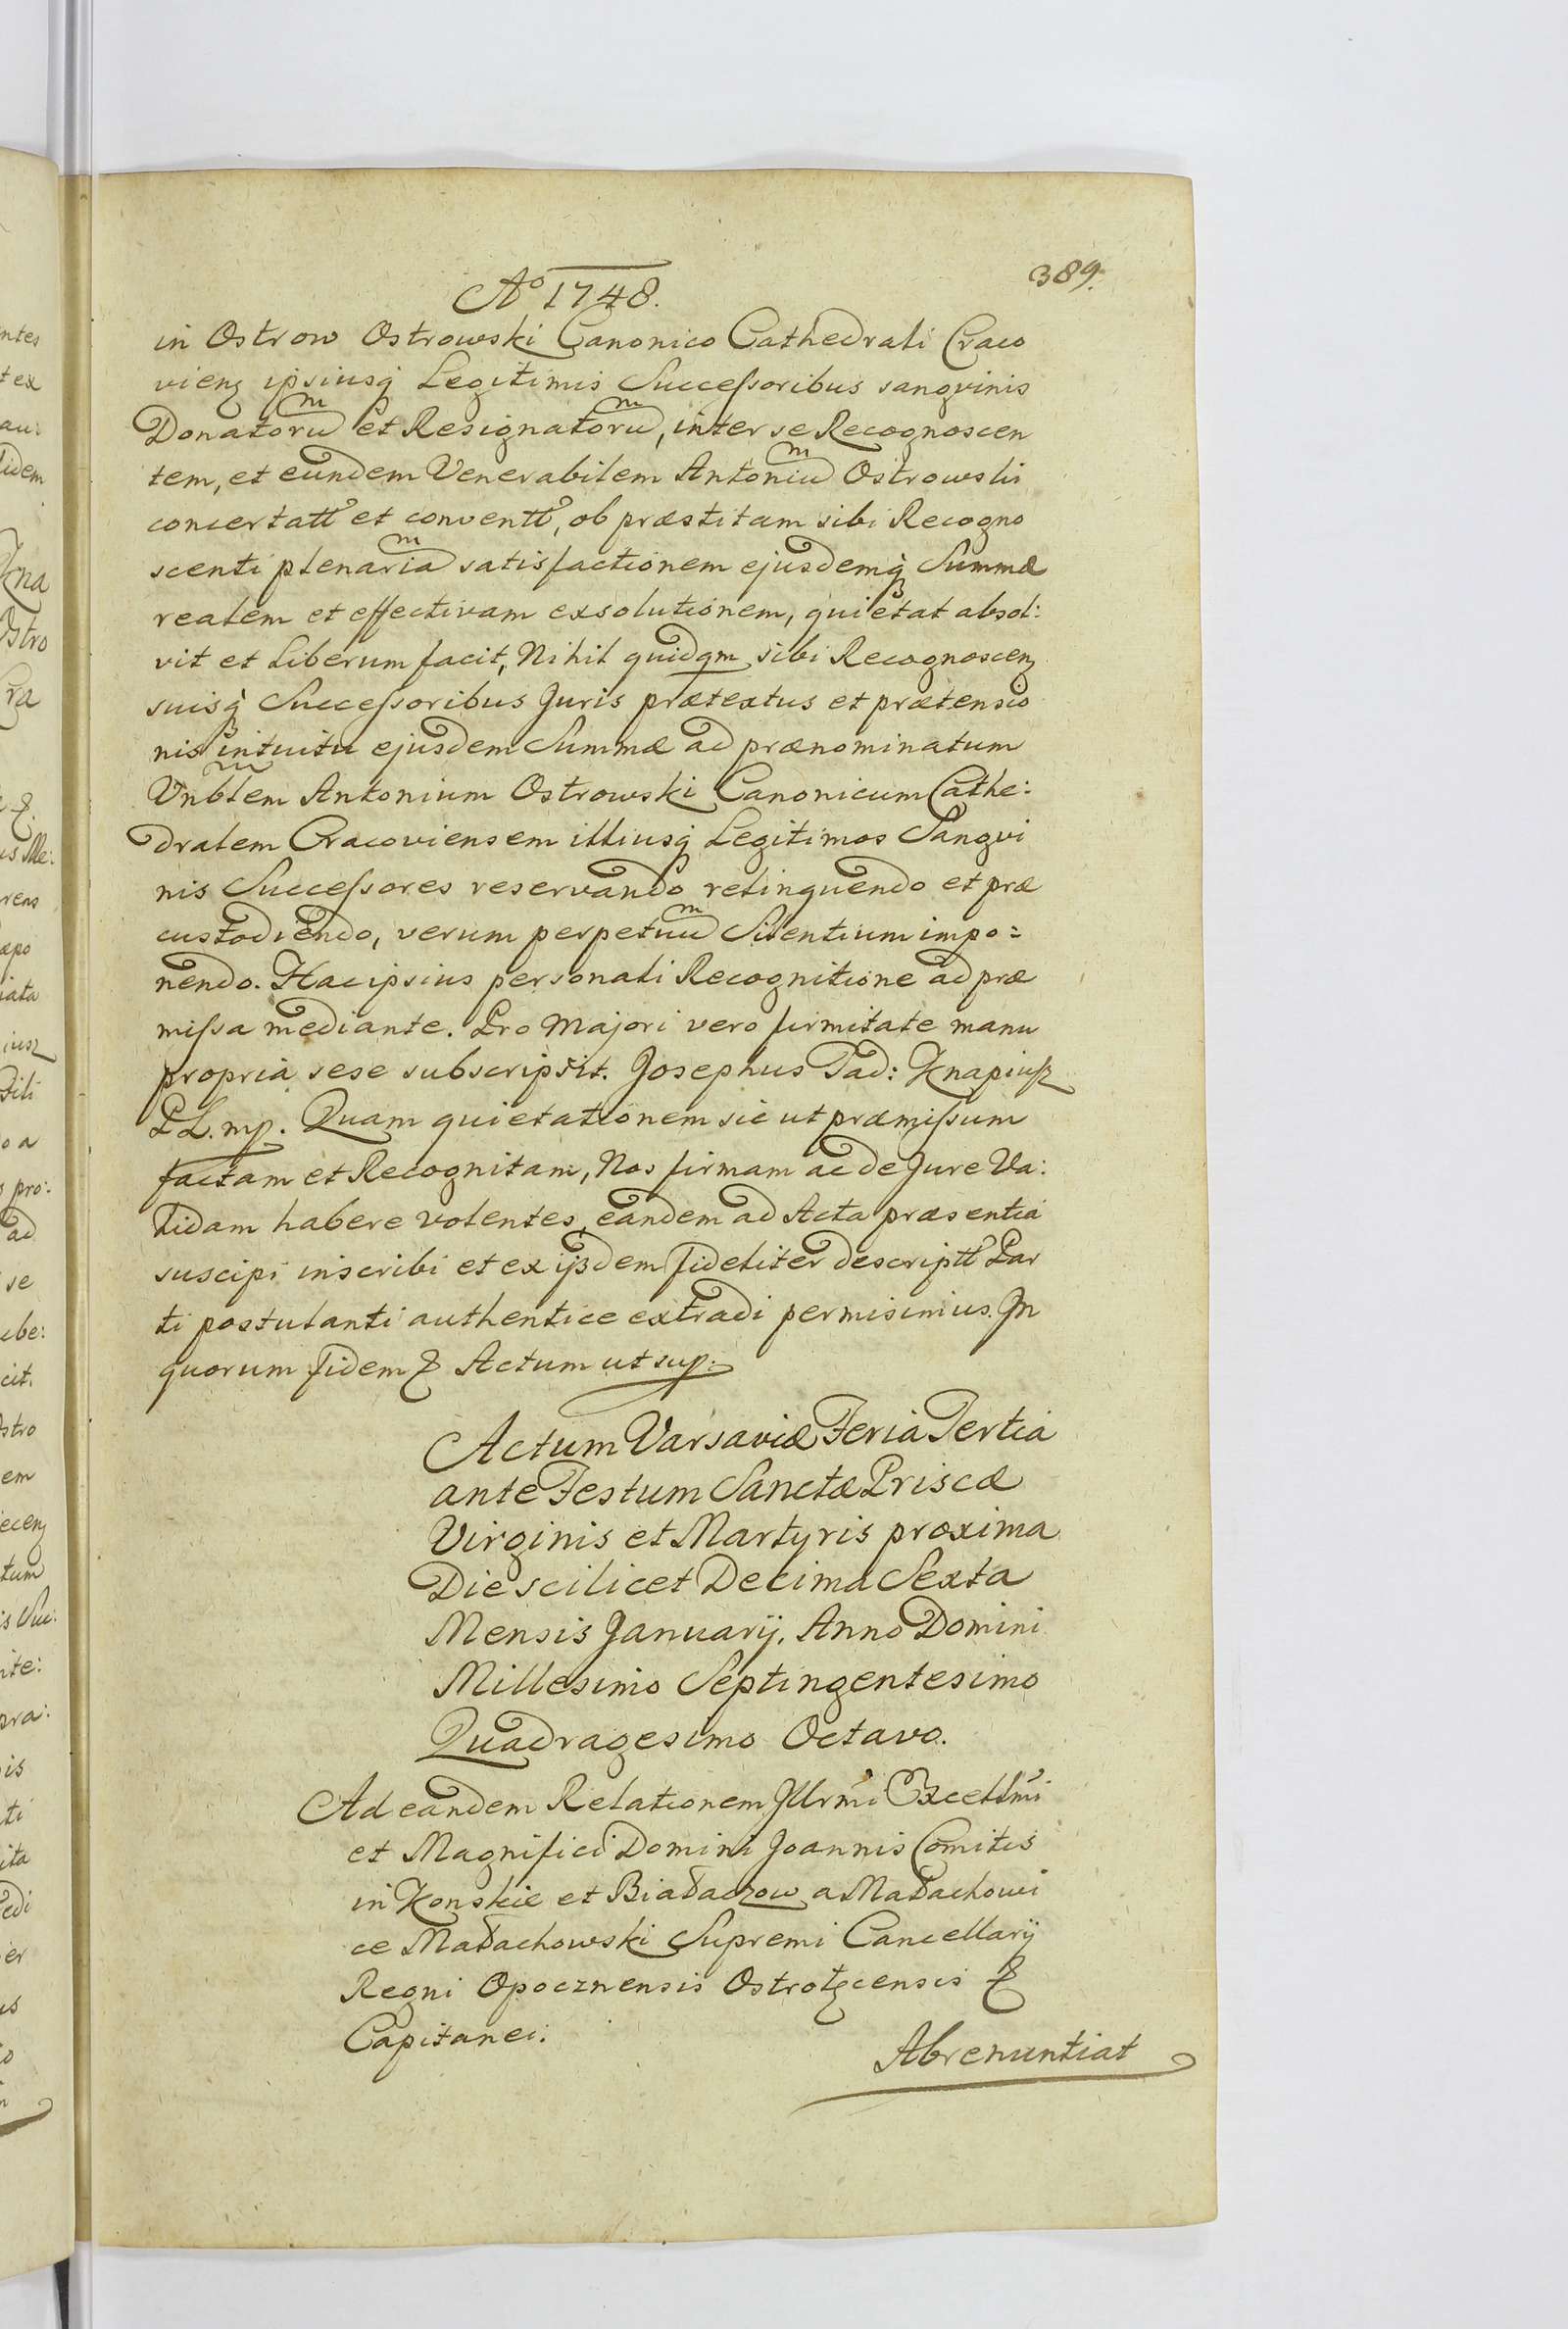 389.
Aº 1748.
in Ostrow Ostrowski Canonico Cathedrali Craco
vienʒ ipsiusq̃ Legitimis Succeſsoribus sangvinis
Donatoruᵐ et Resignatoruᵐ, inter se Recognoscen
tem, et eundem Venerabilem Antoniuᵐ Ostrowski
concertatt̃ et conventt̃, ob præstitam sibi Recogno
scenti plenariaᵐ satisfactionem ejusdemq̃ Summæ
realem et effectivam exsolutionem, quietat absol:
vit et Liberum facit, Nihil quidqm sibi Recognoscenʒ
suisq̃ Succeſsoribus Juris prætextus et prætensio
nis intuitu ejusdem Summæ ad prænominatum
Vnblem Antonium Ostrowski Canonicum Cathe:
dralem Cracoviensem illiusq̃ Legitimos Sangvi
nis Succeſsores reservando relinquendo et præ
custodiendo, verum perpetuuᵐ Silentium impo:
nendo. Hac ipsius personali Recognitione ad præ
miſsa mediante. Pro Majori vero firmitate manu
propria sese subscripsit. Josephus Tad: Knapiuſz
P.L. mp. Quam quietationem sic ut præmiſsum
factam et Recognitam, Nos firmam ac de Jure Va:
lidam habere volentes, eandem ad Acta præsentia
suscipi inscribi et ex ijsdem fideliter descriptt̃ Par
ti postulanti authentice extradi permisimus. In
quorum fidem ꝛ Actum ut sup:
Actum Varsaviæ Feria Tertia
ante Festum Sanctæ Priscæ
Virginis et Martyris proxima
Die scilicet Decima Sexta
Mensis Januarij, Anno Domini
Millesimo Septingentesimo
Quadragesimo Octavo.
Ad eandem Relationem Jllrm̃i Excellm̃i
et Magnifici Domini Joannis Comitis
in Konskie et Białaczow a Małachowi
ce Małachowski Supremi Cancellarij
Regni Opocznensis Ostrołęcensis ꝛ
Capitanei.
Abrenuntiat